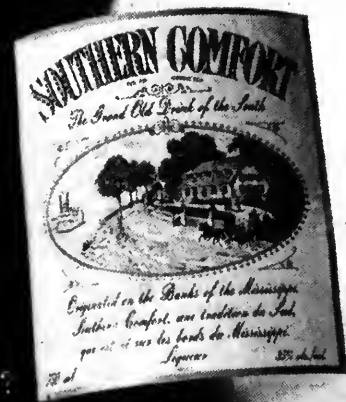 SOUTHERN COMFORT
The Grand Old Drink of the South
Originated on the Banks of the Mississippi,
Southern Comfort, une tradition du Sud,
que est né sur les bords du Mississippi.
Liqueur
750 ml 35% alc./vol.